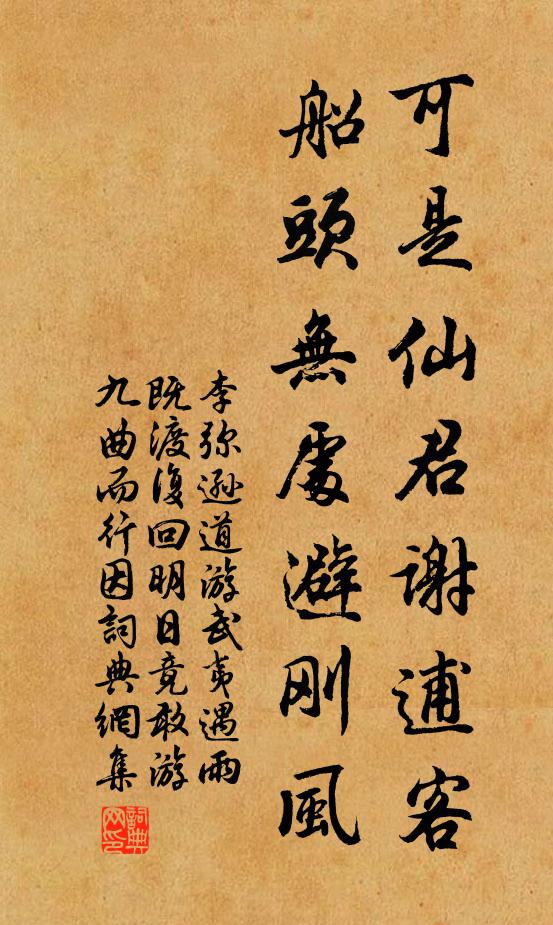 可是仙君谢逋客
船頭無處避刚風
李弥遜道游武夷遇雨
既渡復回明日竟敢游
九曲而行因詞典網集
詞典网印